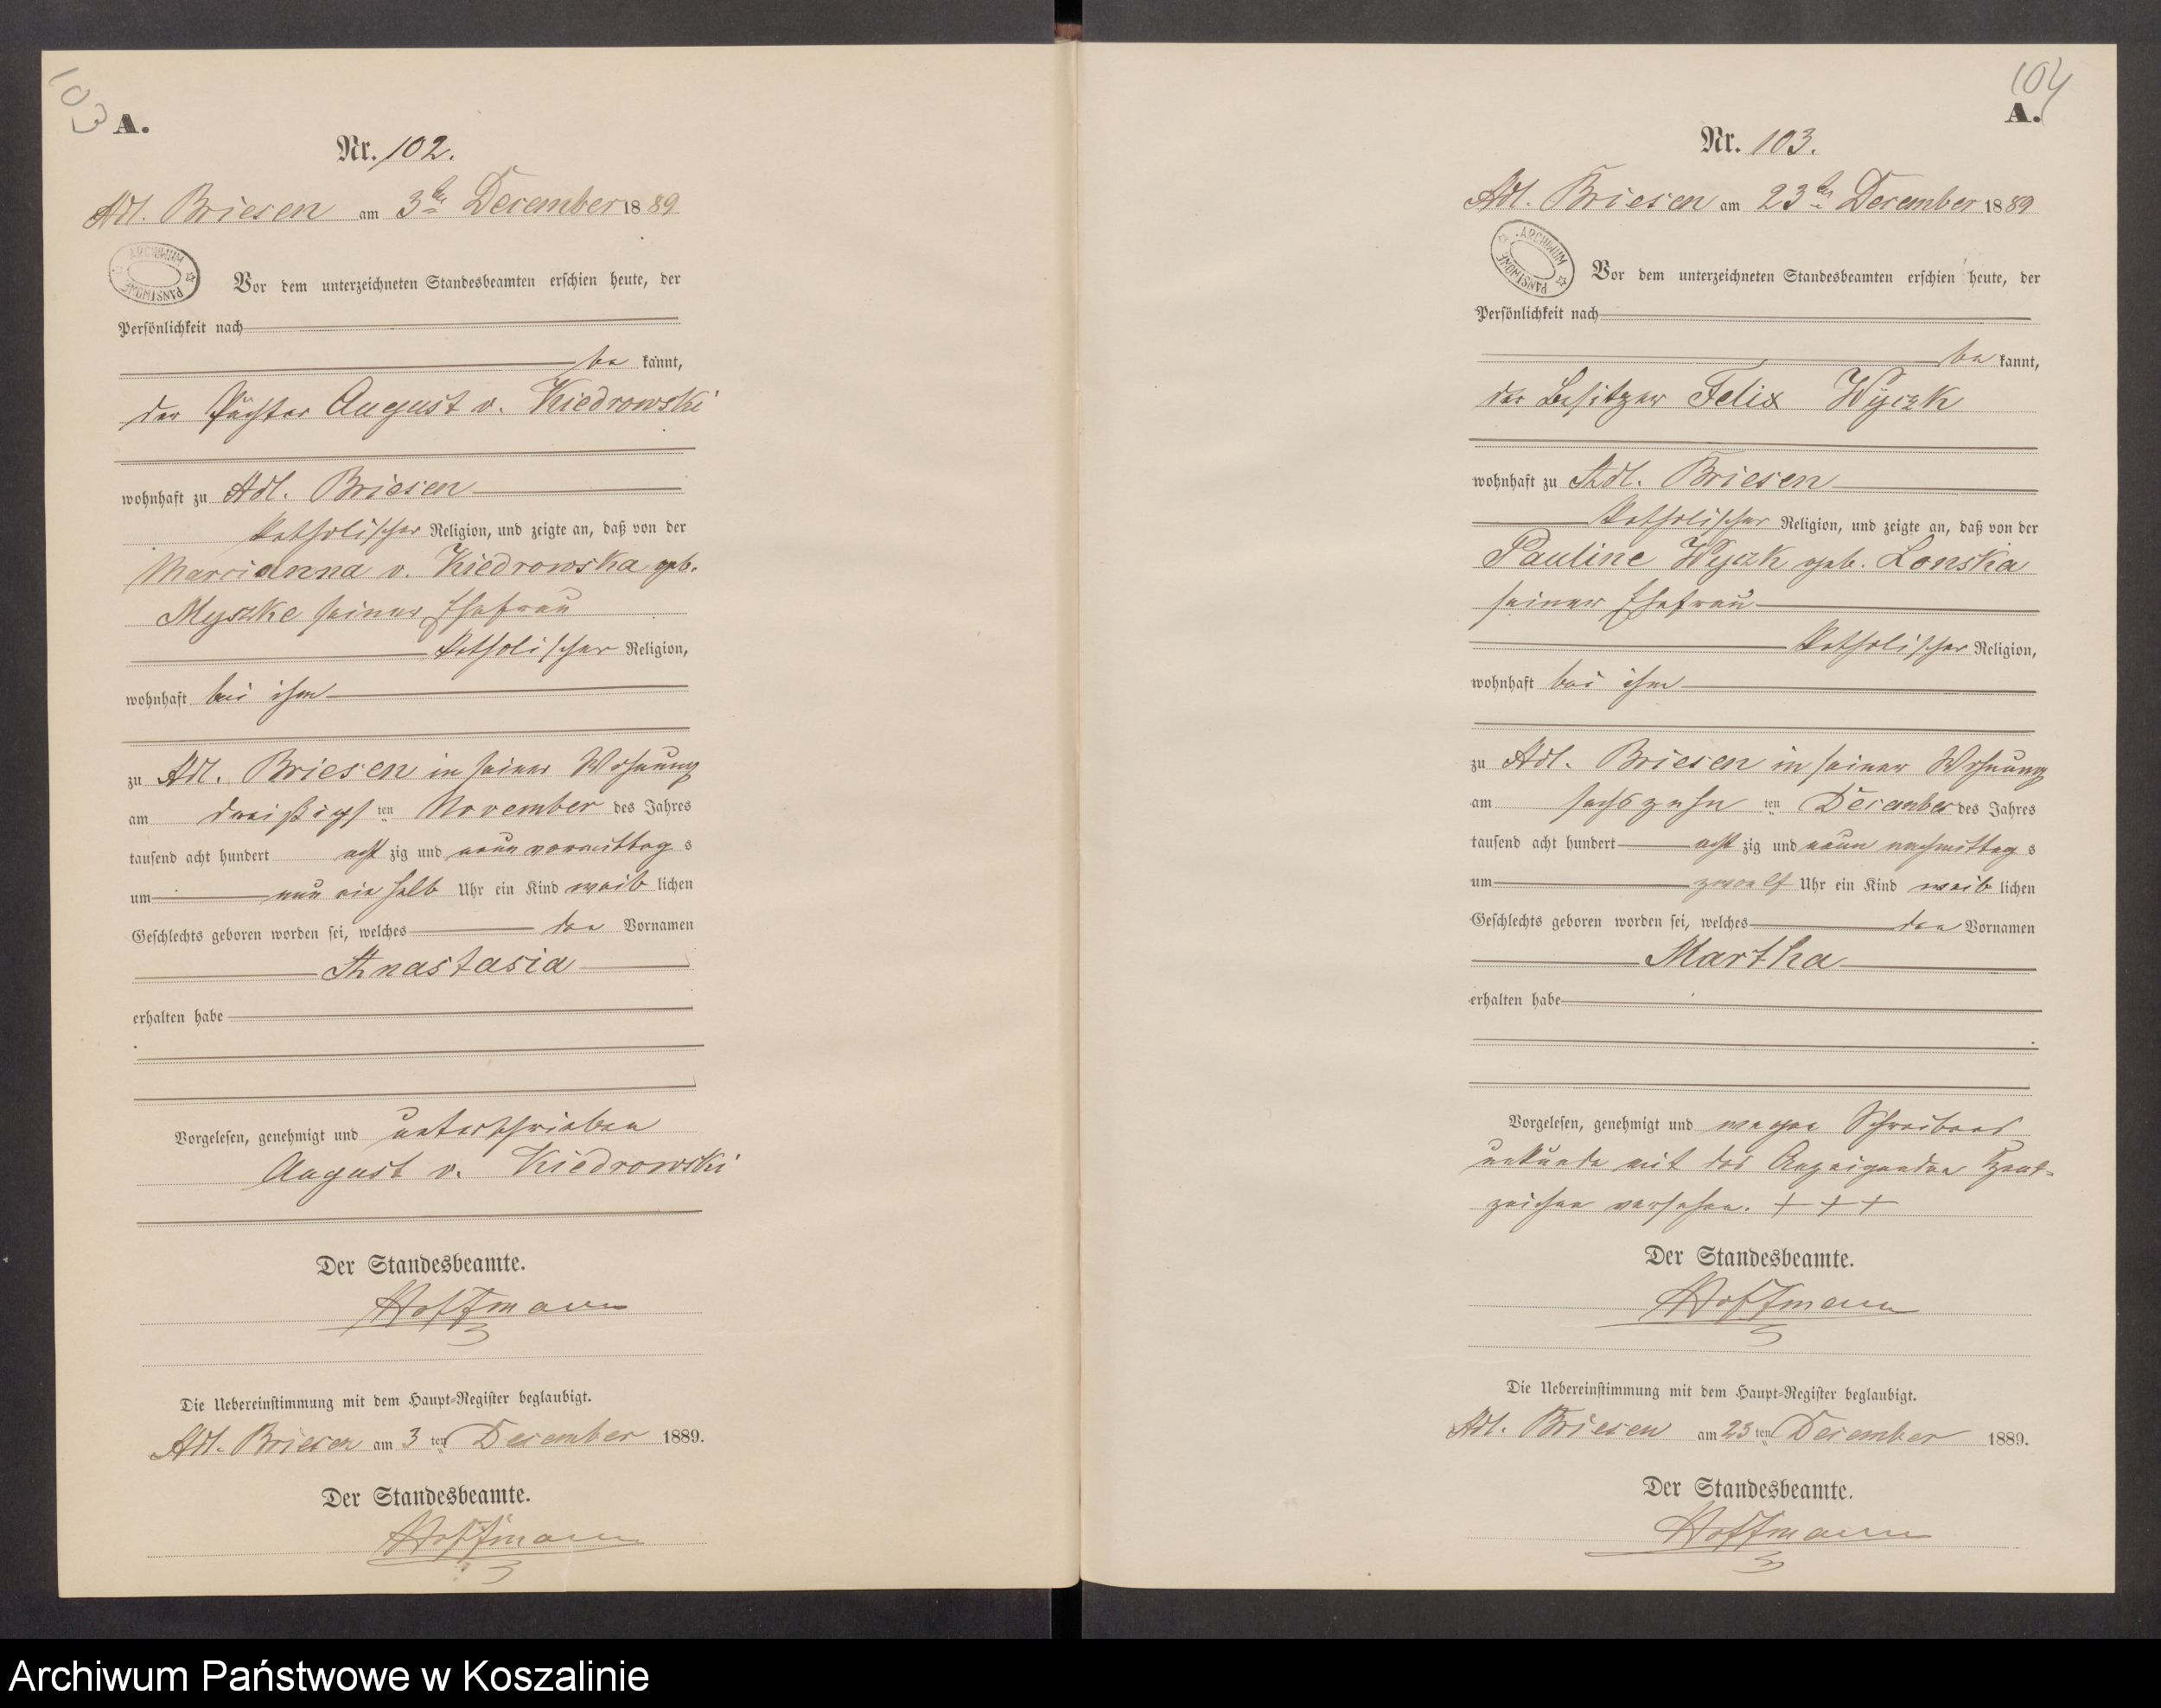 103
A.
Nr. 102.
Adl. Briesen am 3ten December 1889
ARCHIWUM PAŃSTWOWE
Vor dem unterzeichneten Standesbeamten erschien heute, der
Persönlichkeit nach
be kannt,
der Pächter August v. Kiedrowski
wohnhaft zu Adl. Briesen
katholischer Religion, und zeigte an, daß von der
Marcianna v. Kiedrowska geb.
Myszke seiner Ehefrau
katholischer Religion,
wohnhaft bei ihm
zu Adl. Briesen in seiner Wohnung
am dreißigsten November des Jahres
tausend acht hundert acht zig und neun vormittag s
um neun ein halb Uhr ein Kind weib lichen
Geschlechts geboren worden sei, welches den Vornamen
Anastasia
erhalten habe
Vorgelesen, genehmigt und unterschrieben
August v. Kiedrowski
Der Standesbeamte.
Hoffmann
Die Uebereinstimmung mit dem Haupt-Register beglaubigt.
Adl. Briesen am 3 ten December 1889.
Der Standesbeamte.
Hoffmann
104
A.
Nr. 103.
Adl. Briesen am 23ten December 1889
ARCHIWUM PAŃSTWOWE
Vor dem unterzeichneten Standesbeamten erschien heute, der
Persönlichkeit nach
be kannt,
der Besitzer Felix Wyczk
wohnhaft zu Adl. Briesen
katholischer Religion, und zeigte an, daß von der
Pauline Wyczk geb. Lonska
seiner Ehefrau
katholischer Religion,
wohnhaft bei ihm
zu Adl. Briesen in seiner Wohnung
am sechszehn ten December des Jahres
tausend acht hundert acht zig und neun nachmittag s
um zwoelf Uhr ein Kind weib lichen
Geschlechts geboren worden sei, welches den Vornamen
Martha
erhalten habe
Vorgelesen, genehmigt und wegen Schreibens
unkunde mit des Anzeigenden Hand-
zeichen versehen. + + +
Der Standesbeamte.
Hoffmann
Die Uebereinstimmung mit dem Haupt-Register beglaubigt.
Adl. Briesen am 23 ten December 1889.
Der Standesbeamte.
Hoffmann
Archiwum Państwowe w Koszalinie